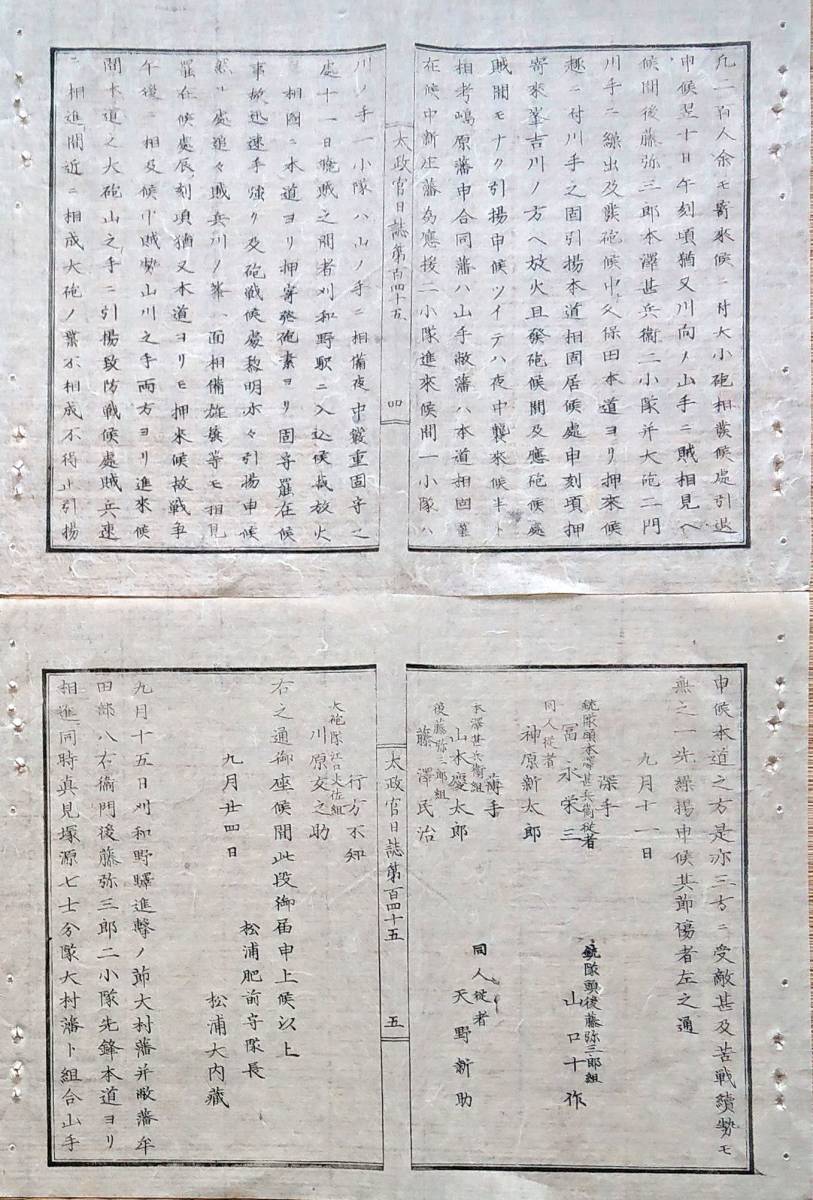 凡一百人余モ寄来候ニ付大小砲相發候處引退
申候翌十日午刻頃猶又川向ノ山手ニ賊相見ヘ
候間後藤弥三郎本澤甚兵衞二小隊并大砲二門
川手ニ繰出及發砲候中久保田本道ヨリ押來候
趣ニ付川手之固引揚本道相固居候處申刻頃押
寄來峯吉川ノ方ヘ放火且發砲候間及應砲候處
賊間モナク引揚申候ツイテハ夜中襲来候半ト
相考嶋原藩申合同藩ハ山手敝藩ハ本道相固罷
在候中新庄藩為應援二小隊進来候間一小隊ハ
太政官日誌第百四十五
四
川ノ手一小隊ハ山ノ手ニ相備夜中嚴重固守之
處十一日晩賊之間者刈和野駅ニ入込候哉放火
相圖ニ本道ヨリ押寄發砲素ヨリ固守罷在候
事故迅速手強ク及砲戦候處黎明引揚申候
然ル處追々賊兵川ノ峯ヘ面相備旌旗等モ相見
罷在候處辰刻頃猶又本道ヨリモ押来候故戦争
午後ニ相及候中賊勢山川之手両方ヨリ進來候
間本道之大砲山之手ニ引揚致防戦候處賊兵速
ニ相進間近ニ相成大砲ノ業不相成不得止引揚
申候本道之方是亦三方ニ受敵甚及苦戦續勢モ
無之一先繰揚申候其節傷者左之通
九月十一日
深手
銃隊頭本澤甚兵衞従者
冨永栄三
銃隊頭後藤弥三郎組
山口十作
同人従者
神原新太郎
同人従者
天野新助
薄手
本澤甚兵衞組
山本慶太郎
後藤弥三郎組
藤澤民治
行方不知
大砲隊江口夫佐組
川原文之助
右之通御座候間此段御届申上候以上
九月廿四日
松浦肥前守隊長
松浦大内藏
太政官日誌第百四十五
五
九月十五日刈和野驛進撃ノ節大村藩并敝藩牟
田部八右衞門後藤弥三郎二小隊先鋒本道ヨリ
相進同時真見塚源七士分隊大村藩ト組合山手